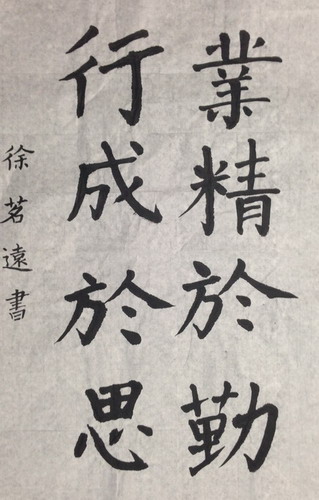 業精於勤
行成於思
徐茗遠書